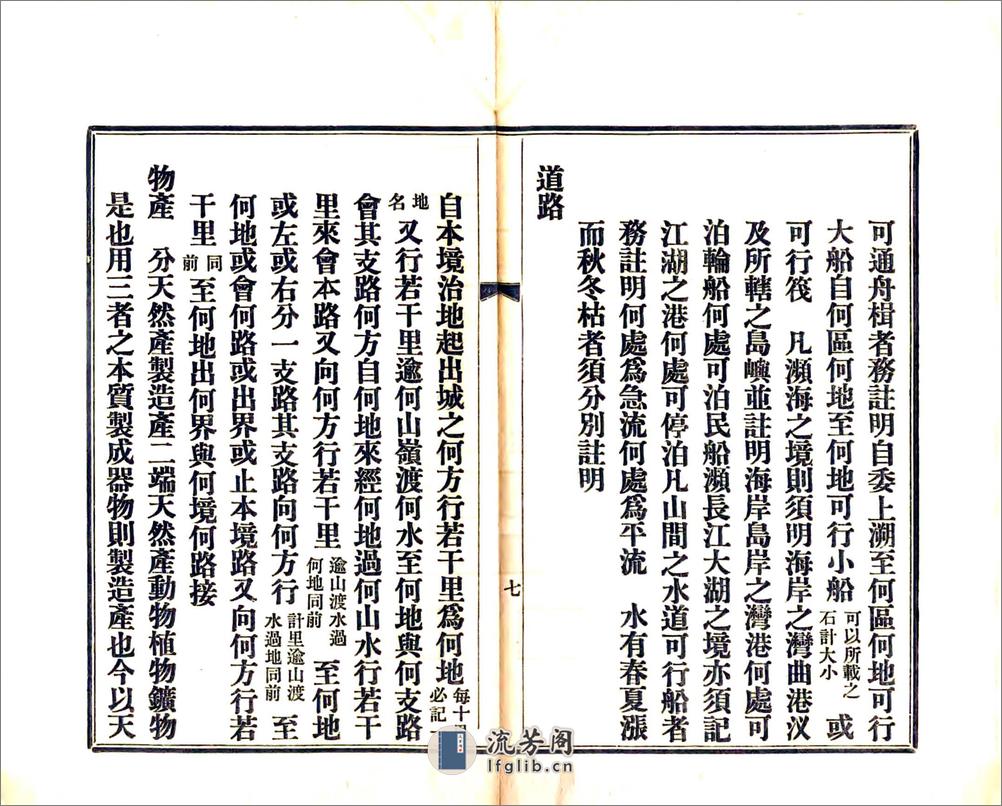 可通舟楫者務註明自委上溯至何區何地可行
大船自何區何地至何地可行小船可以所載之石計大小或
可行筏　凡瀕海之境則須明海岸之灣曲港汊
及所轄之島嶼並註明海岸島岸之灣港何處可
泊輪船何處可泊民船瀕長江大湖之境亦須記
江湖之港何處可停泊凡山間之水道可行船者
務註明何處爲急流何處爲平流　水有春夏漲
而秋冬枯者須分別註明
道路
七
自本境治地起出城之何方行若干里爲何地每十必記
地名又行若干里逾何山嶺渡何水至何地與何支路
會其支路何方自何地來經何地過何山水行若干
里來會本路又向何方行若干里逾山渡水過何地同前至何地
或左或右分一支路其支路向何方行計里逾山渡水過地同前至
何地或會何路或出界或止本境路又向何方行若
干里同前至何地出何界與何境何路接
物產　分天然產製造產二端天然產動物植物鑛物
是也用三者之本質製成器物則製造產也今以天
流芳阁
lfglib.cn